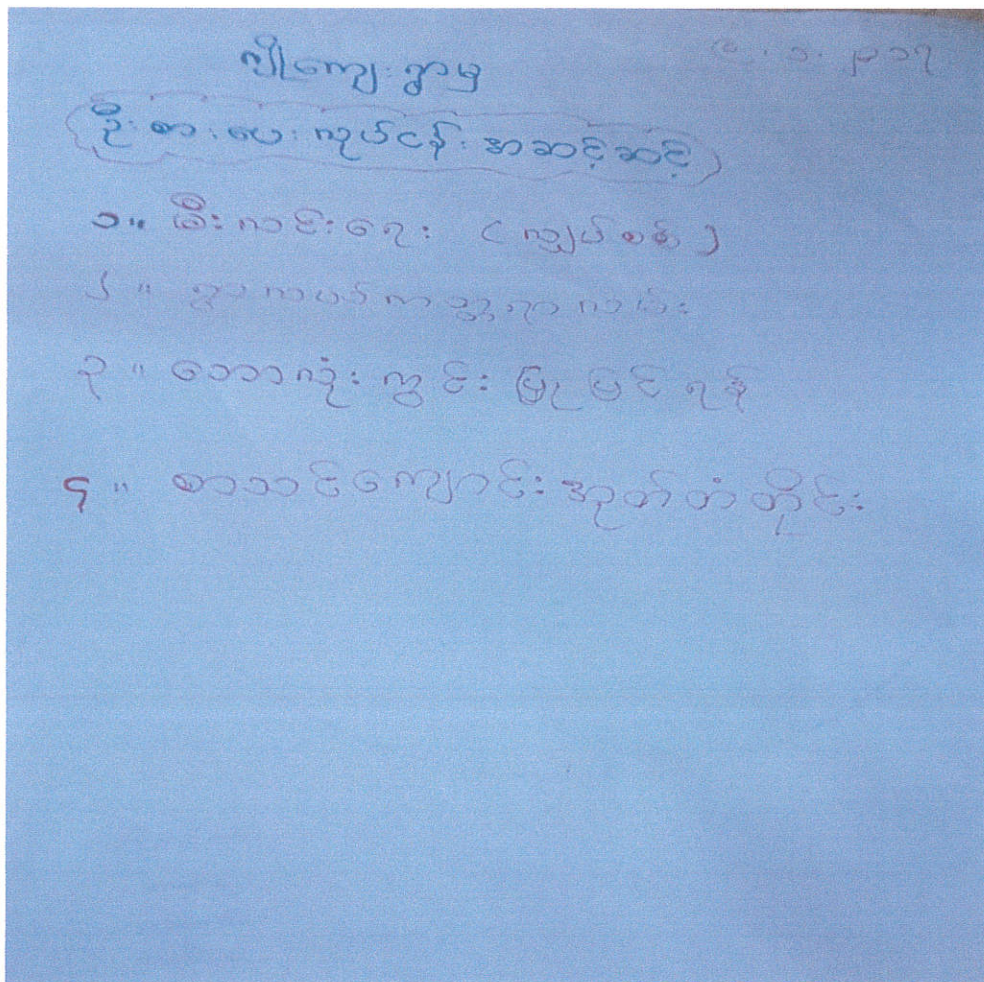 ၆.၁.၂၀၁၇
ကျိုကျေးရွာမှ
ဦးစားပေးလုပ်ငန်းအဆင့်ဆင့်
၁။ မီးလင်းရေး (လျှပ်စစ်)
၂။ ရွာလယ်ကတ္တရာလမ်း
၃။ ဘောလုံးကွင်းပြုပြင်ရန်
၄။ စာသင်ကျောင်းအုတ်တံတိုင်း